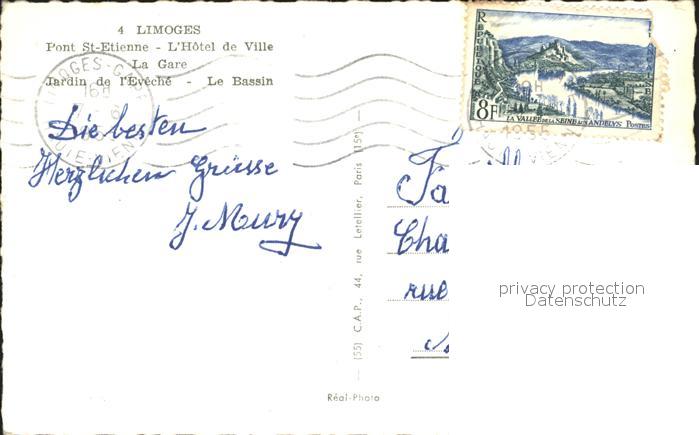 4 LIMOGES
Pont St-Etienne - L'Hôtel de Ville
La Gare
Jardin de l'Evêché - Le Bassin
LIMOGES-GARE
16H
Die besten
Herzlichen Grüsse
J. Mury
REPUBLIQUE
FRANÇAISE
8F
LA VALLÉE DE LA SEINE AUX ANDELYS POSTES
1955
(55) C.A.P., 44, rue Letellier, Paris (15e)
Réal-Photo
Fa
Cha
rue
privacy protection
Datenschutz